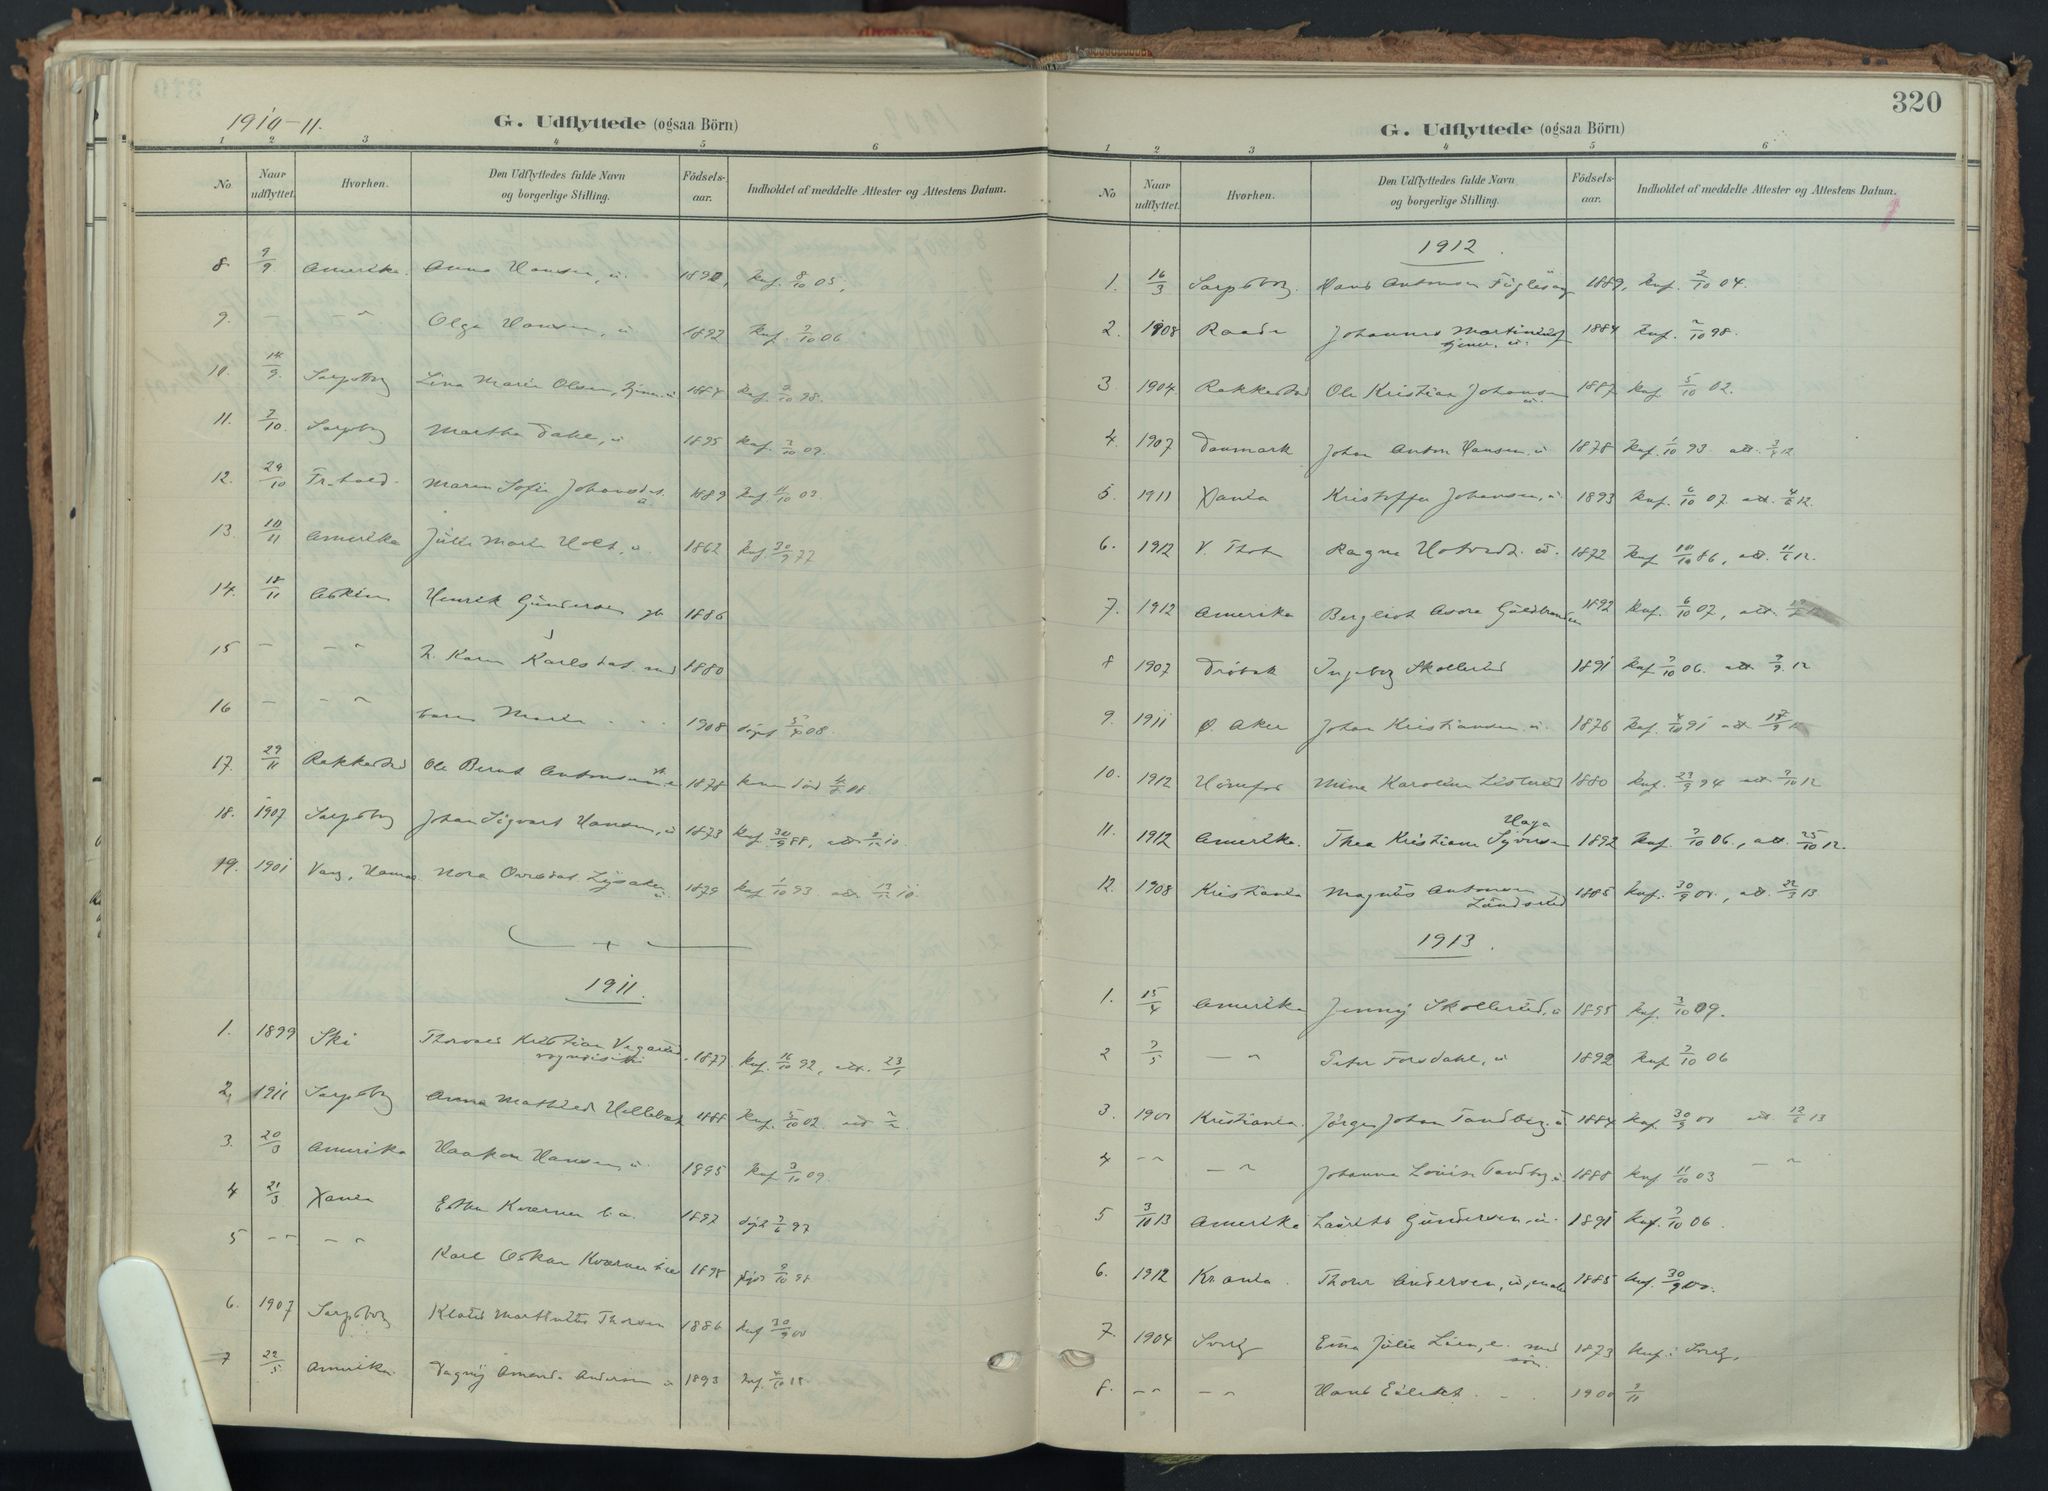 1910-11.
G. Udflyttede (ogsaa Börn)
1 2 3 4 5 6
No. Naar udflyttet. Hvorhen. Den Udflyttedes fulde Navn og borgerlige Stilling. Födsels-aar. Indholdet af meddelte Attester og Attestens Datum.
8. 9/9 Amerika. Anna Hansen, u. 1890, knf. 8/10 05,
9. – " Olga Hansen, u 1892 knf. 7/10 06
10. 14/9. Sarpsborg Lina Marie Olsen, tjen. u 1884 knf. 2/10 98.
11. 7/10. Sarpsborg Martha Dahl, u 1895 knf. 3/10 09.
12. 29/10 Fr.hald. Maren Sofie Johansdat. u. 1889 knf 11/10 03.
13. 10/11 Amerika Julie Marie Holt, u. 1862 knf 30/9 77
14. 18/11 Askim Henrik Gundersen gb 1886
15 – – " h. Karen Karlsdat. med 1880
16 – – " barn Marie 1908 döpt 08.
17. 29/11 Rakkestad Ole Bernt Antonsen 1878 kone död 08.
18. 1907 Sarpsborg Johan Sigvart Hansen, u 1873 knf. 30/9 88, att. 2/12 10.
19. 1901 Vang, Hamar Nora 1879 knf 1/10 93 att. 13/12 10.
1911.
1. 1899 Ski Thorvald Kristian 1877. knf. 16/10 92, att. 23/1
2. 1911 Sarpsborg Anna Mathilde 1888 knf. 5/10 02 att
3. 20/3 Amerika Haakon Hansen, u. 1895 knf 3/10 09.
4 21/3 Xania Esther Kværner b.a. 1897 döpt 7/6 97
5 – " – " Karl Oskar Kværner 1898 döpt 9/10 98
6. 1907 Sarpsborg Thorsen 1886 knf 30/9 00
7 22/5 Amerika. Dagny Amanda Andersen u 1893 knf. 4/10
320
G. Udflyttede (ogsaa Börn)
1 2 3 4 5 6
No Naar udflyttet. Hvorhen. Den Udflyttedes fulde Navn og borgerlige Stilling. Födsels-aar. Indholdet af meddelte Attester og Attestens Datum.
1912.
1. 16/3 Sarpsborg. Hans Antonsen Fuglesang 1889, knf. 2/10 04.
2. 1908 Raade Johannes tjener. u. 1884 knf. 2/10 98.
3. 1904. Rakkestad Ole Kristian Johansen u. 1887 knf 5/10 02.
4. 1907 Danmark Johan Anton Hansen. u 1878 knf. 1/10 93 att. 12
5. 1911 Xania Kristoffer Johansen, u. 1893 knf. 6/10 07 att. 4/6 12.
6. 1912 V. Thoten Ragna u. 1872 knf 10/10 86, att. 11/6 12.
7. 1912 Amerika Bergliot Asora Guldbrandsen 1892 knf. 6/10 07, att.
8 1907 Dröbak Ingeborg Skollerud 1891 knf 7/10 06. att 9/9 12
9. 1911 Ö. Aker Johan Kristiansen. u. 1876 knf. 4/10 91 att 17/9 12
10. 1912 Hönefos Mina Karoline 1880 knf. 23/9 94 att. 7/10 12
11. 1912 Amerika. Thea Kristiane Haga Syversen 1892 knf. 7/10 06., att. 25/10 12.
12. 1908 Kristiania Magnus Antonsen Lundsrud 1885 knf. 30/9 00., att. 22/3 13
1913.
1. 15/4 Amerika Jenny Skollerud, u 1895 knf. 3/10 09.
2 7/5 – " Peter Forsdahl, u 1892 knf 7/10 06
3. 1900 Kristiania. Jörgen Johan Tandberg. u 1884 knf. 30/9 00 att. 12/6 13
4 – " – " Johanna Louise Tandberg u 1888 knf 11/10 03 – "
5 3/10 13 Amerika Laurits Gundersen, u. 1891 knf. 7/10 06.
6. 1912 Kr.ania. Thorer Andersen, u, 1885 knf. 30/9 00.
7. 1904 Emma Julie Lien, e. med sön. 1873 knf. i
8. – " – " Hans 1900 9/11